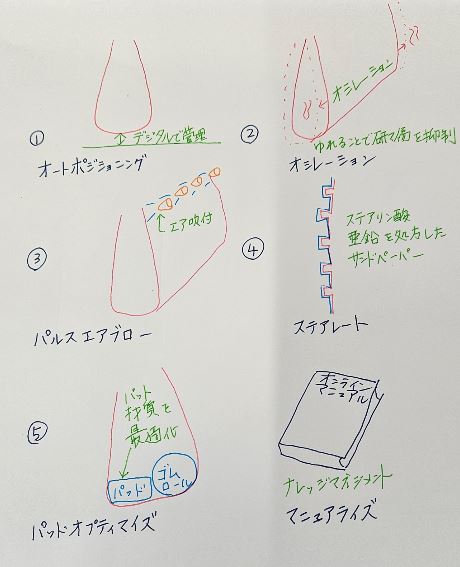 ① デジタルで管理
オートポジショニング
② オシレーション
ゆれることで研マ傷を抑制
オシレーション
③ エア吹付
パルスエアブロー
④ ステアリン酸
亜鉛を処方した
サンドペーパー
ステアレート
⑤ パット
材質を
最適化
パッド
ゴム
ロール
パッドオプティマイズ
オンライン
マニュアル
ナレッジマネジメント
マニュアライズ